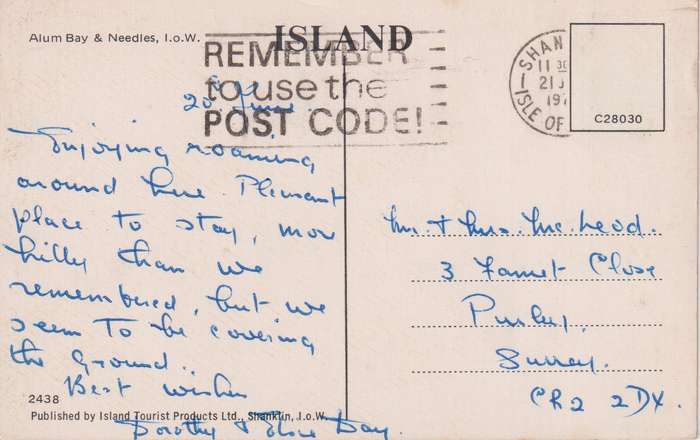 Alum Bay & Needles, I.o.W.
ISLAND
REMEMBER
to use the
POST CODE!
SHAN
11 30
21 J
197
ISLE OF
C28030
20th June
Enjoying roaming
around here. Pleasant
place to stay, more
hilly than we
remembered, but we
seem to be covering
the ground..
Best wishes
Dorothy & Day
Mr. & Mrs. McLeod.
3 Farnet Close
Purley,
Surrey.
CR2 2DX.
2438
Published by Island Tourist Products Ltd., Shanklin, I.o.W.